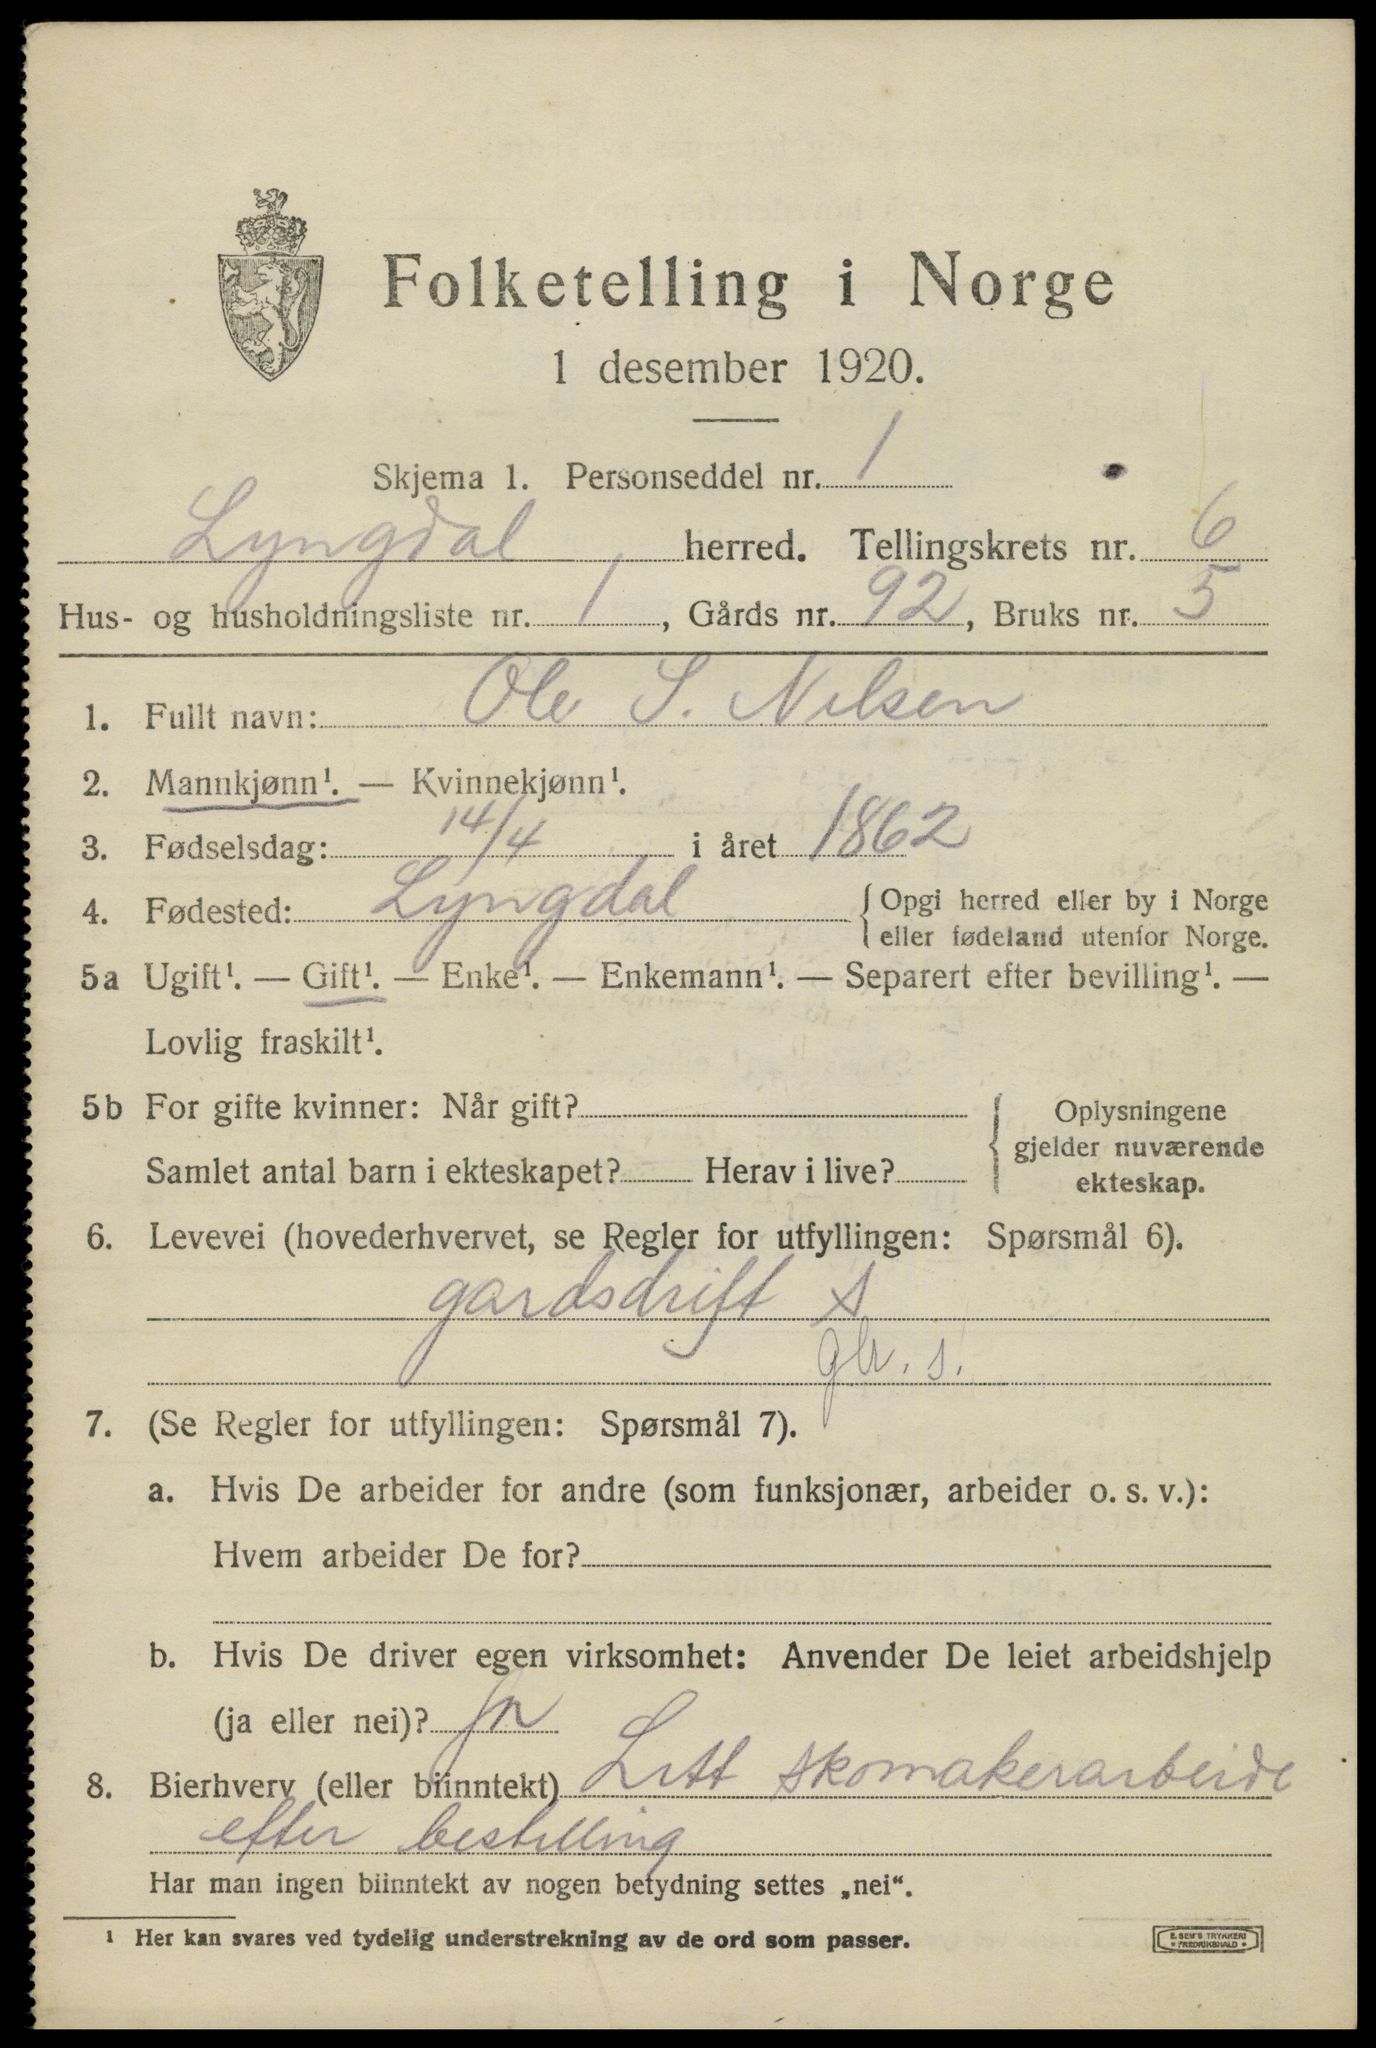 Folketelling i Norge
1 desember 1920.
Skjema 1. Personseddel nr. 1
Lyngdal herred. Tellingskrets nr. 6
Hus- og husholdningsliste nr. 1, Gårds nr. 92, Bruks nr. 5
1. Fullt navn: Ole S. Nilsen
2. Mannkjønn¹. — Kvinnekjønn¹.
3. Fødselsdag: 14/4 i året 1862
4. Fødested: Lyngdal {Opgi herred eller by i Norge
eller fødeland utenfor Norge.
5a Ugift¹. — Gift¹. — Enke¹. — Enkemann¹. — Separert efter bevilling¹. —
Lovlig fraskilt¹.
5b For gifte kvinner: Når gift? Oplysningene
gjelder nuværende
Samlet antal barn i ekteskapet? Herav i live? ekteskap.
6. Levevei (hovederhvervet, se Regler for utfyllingen: Spørsmål 6).
gardsdrift s
gbr. s.
7. (Se Regler for utfyllingen: Spørsmål 7).
a. Hvis De arbeider for andre (som funksjonær, arbeider o. s. v.):
Hvem arbeider De for?
b. Hvis De driver egen virksomhet: Anvender De leiet arbeidshjelp
(ja eller nei)? Ja
8. Bierhverv (eller biinntekt) Litt skomakerarbeide
efter bestilling
Har man ingen biinntekt av nogen betydning settes „nei“.
¹ Her kan svares ved tydelig understrekning av de ord som passer.
E. SEM'S TRYKKERI
FREDRIKSHALD